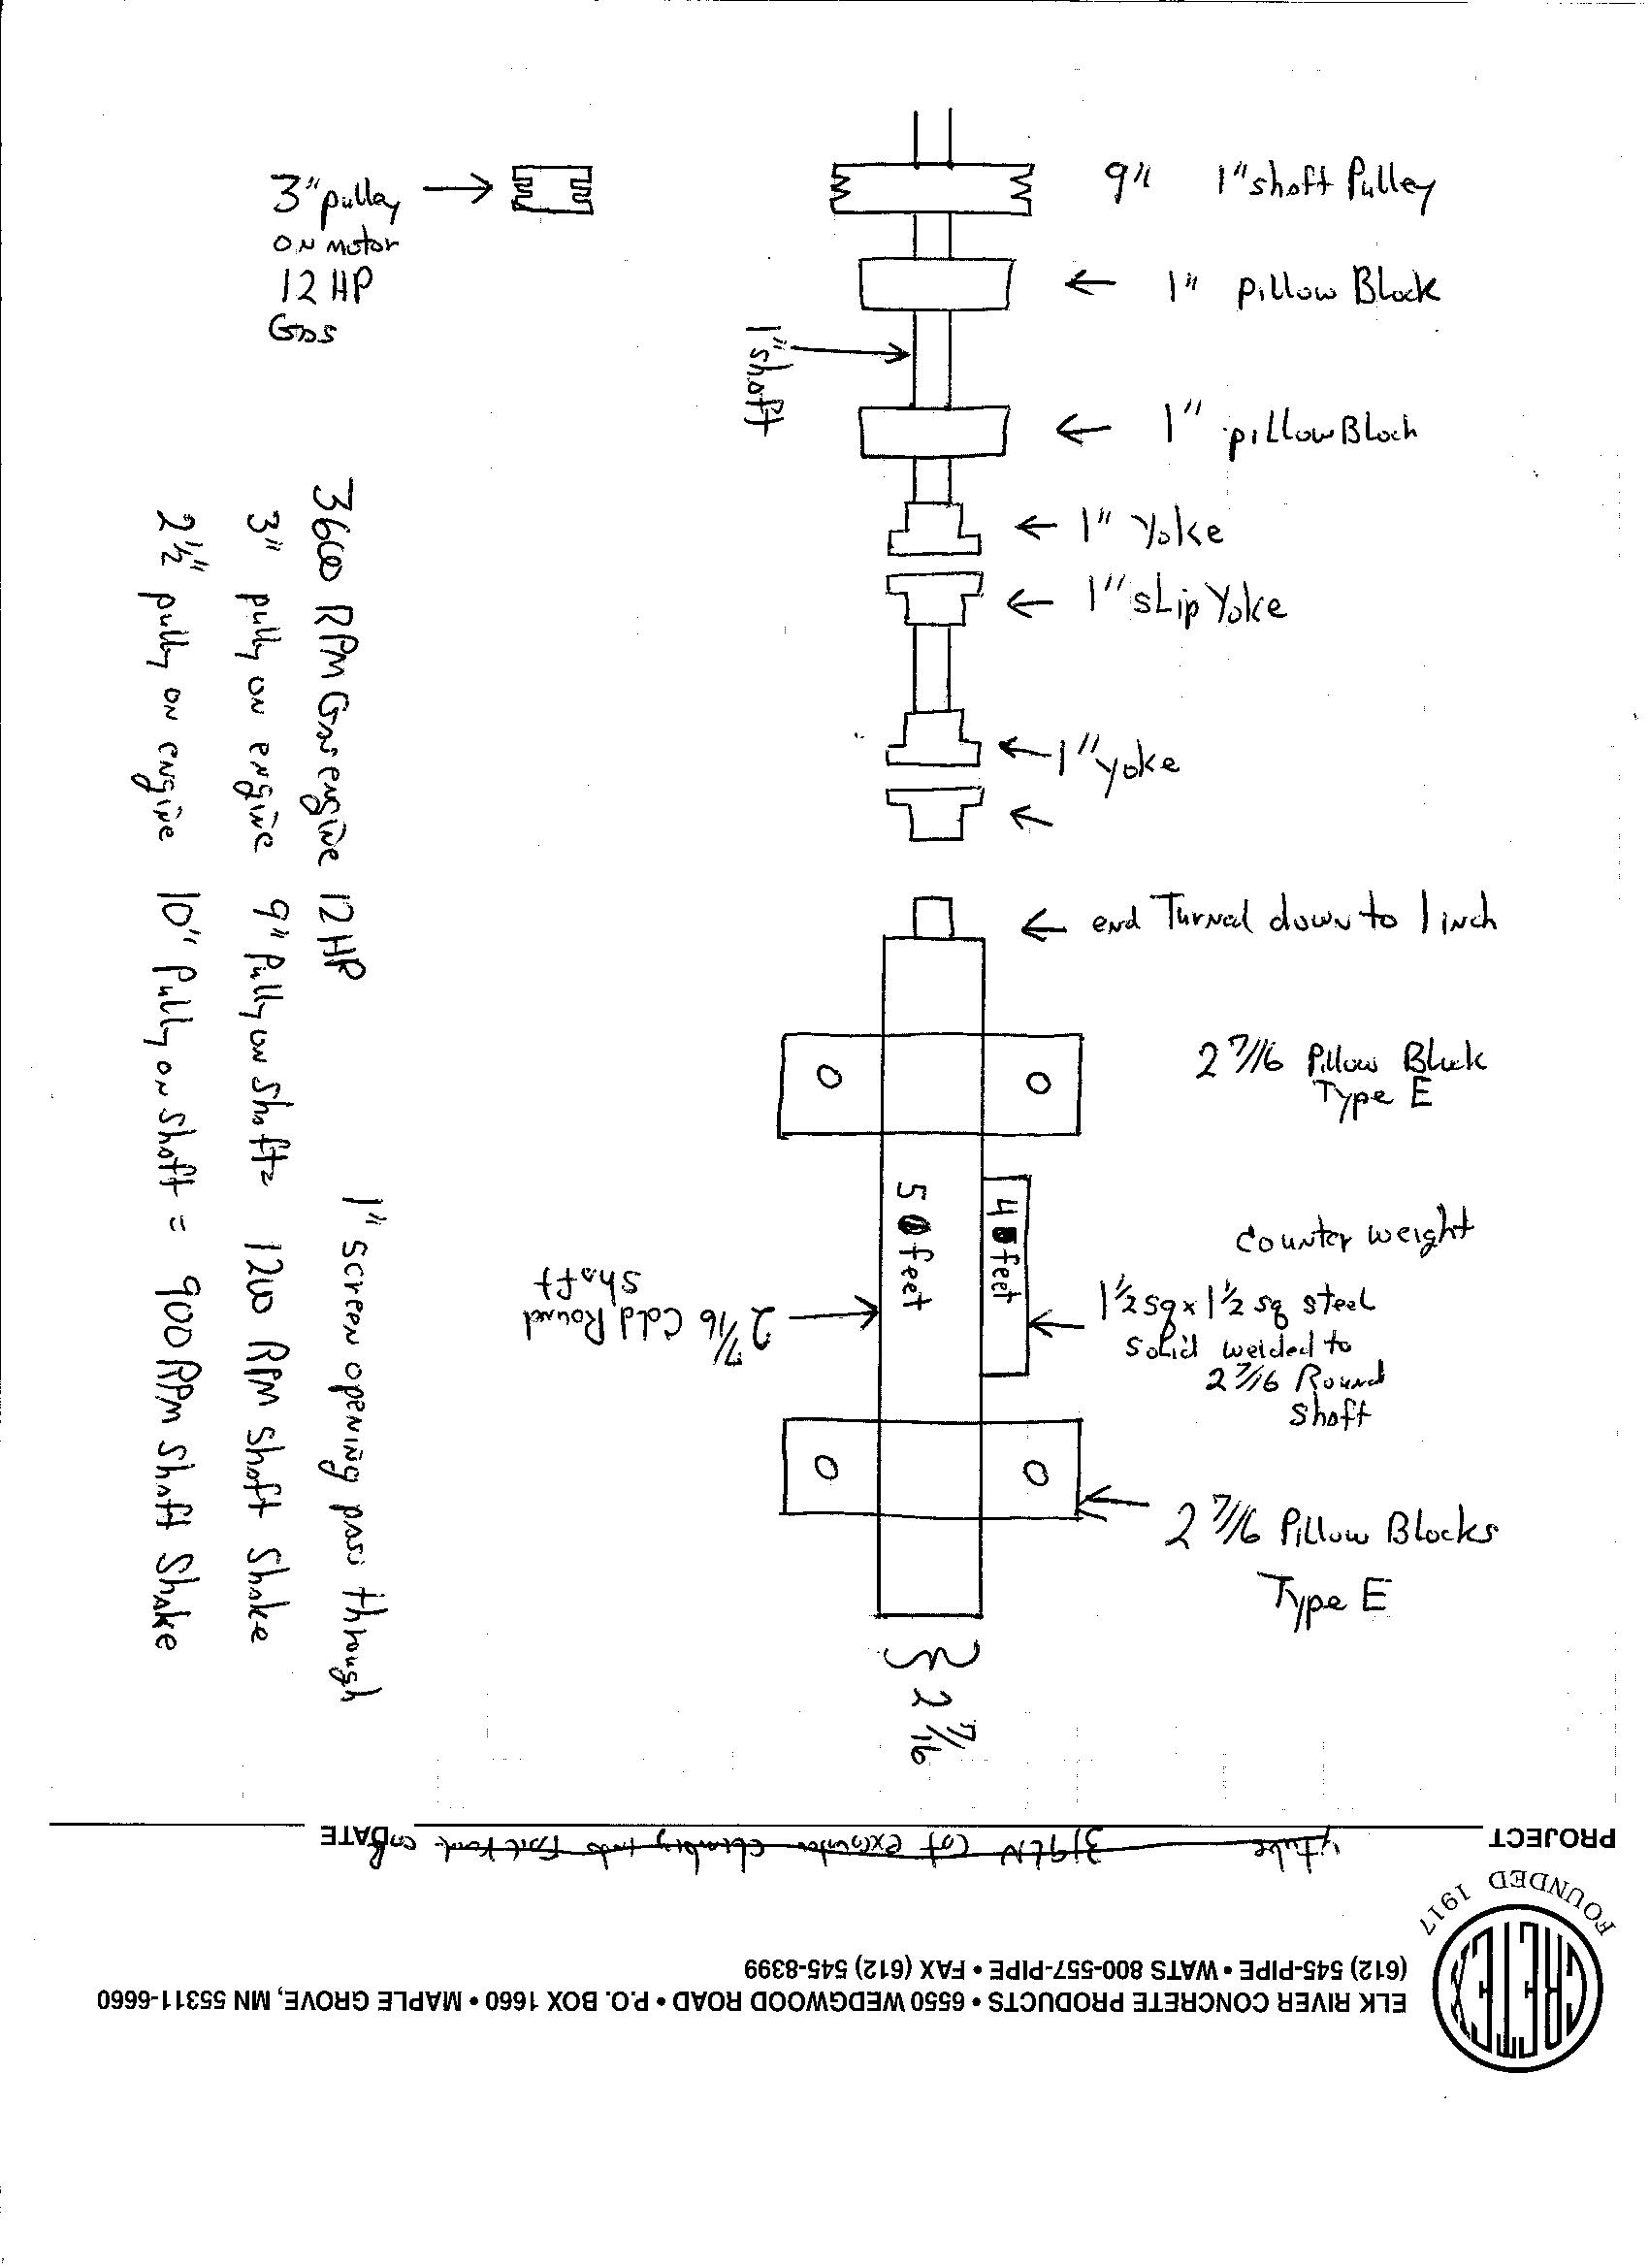 3" pulley
ON motor
12 HP
GAS
9" 1" shaft Pulley
1" pillow Block
1" shaft
1" pillow Block
1" Yoke
1" sLip Yoke
1" yoke
end Turned down to 1 inch
2 7/16 Pillow Block
Type E
5 feet
4 feet
counter weight
1 1/2 sq x 1 1/2 sq steel
solid welded to
2 7/16 Round
shaft
2 7/16 Cold Round
shaft
2 7/16 Pillow Blocks
Type E
2 7/16
3600 RPM Gas engine 12 HP
3" pully on engine 9" Pully on shaft = 1200 RPM shaft Shake
2 1/2" pully on engine 10" Pully on shaft = 900 RPM shaft Shake
1" screen opening pass through
PROJECT
DATE
ytube 319ELN Cat excavator climbing into
FOUNDED 1917
CRETEX
ELK RIVER CONCRETE PRODUCTS • 6550 WEDGWOOD ROAD • P.O. BOX 1660 • MAPLE GROVE, MN 55311-6660
(612) 545-PIPE • WATS 800-557-PIPE • FAX (612) 545-8399